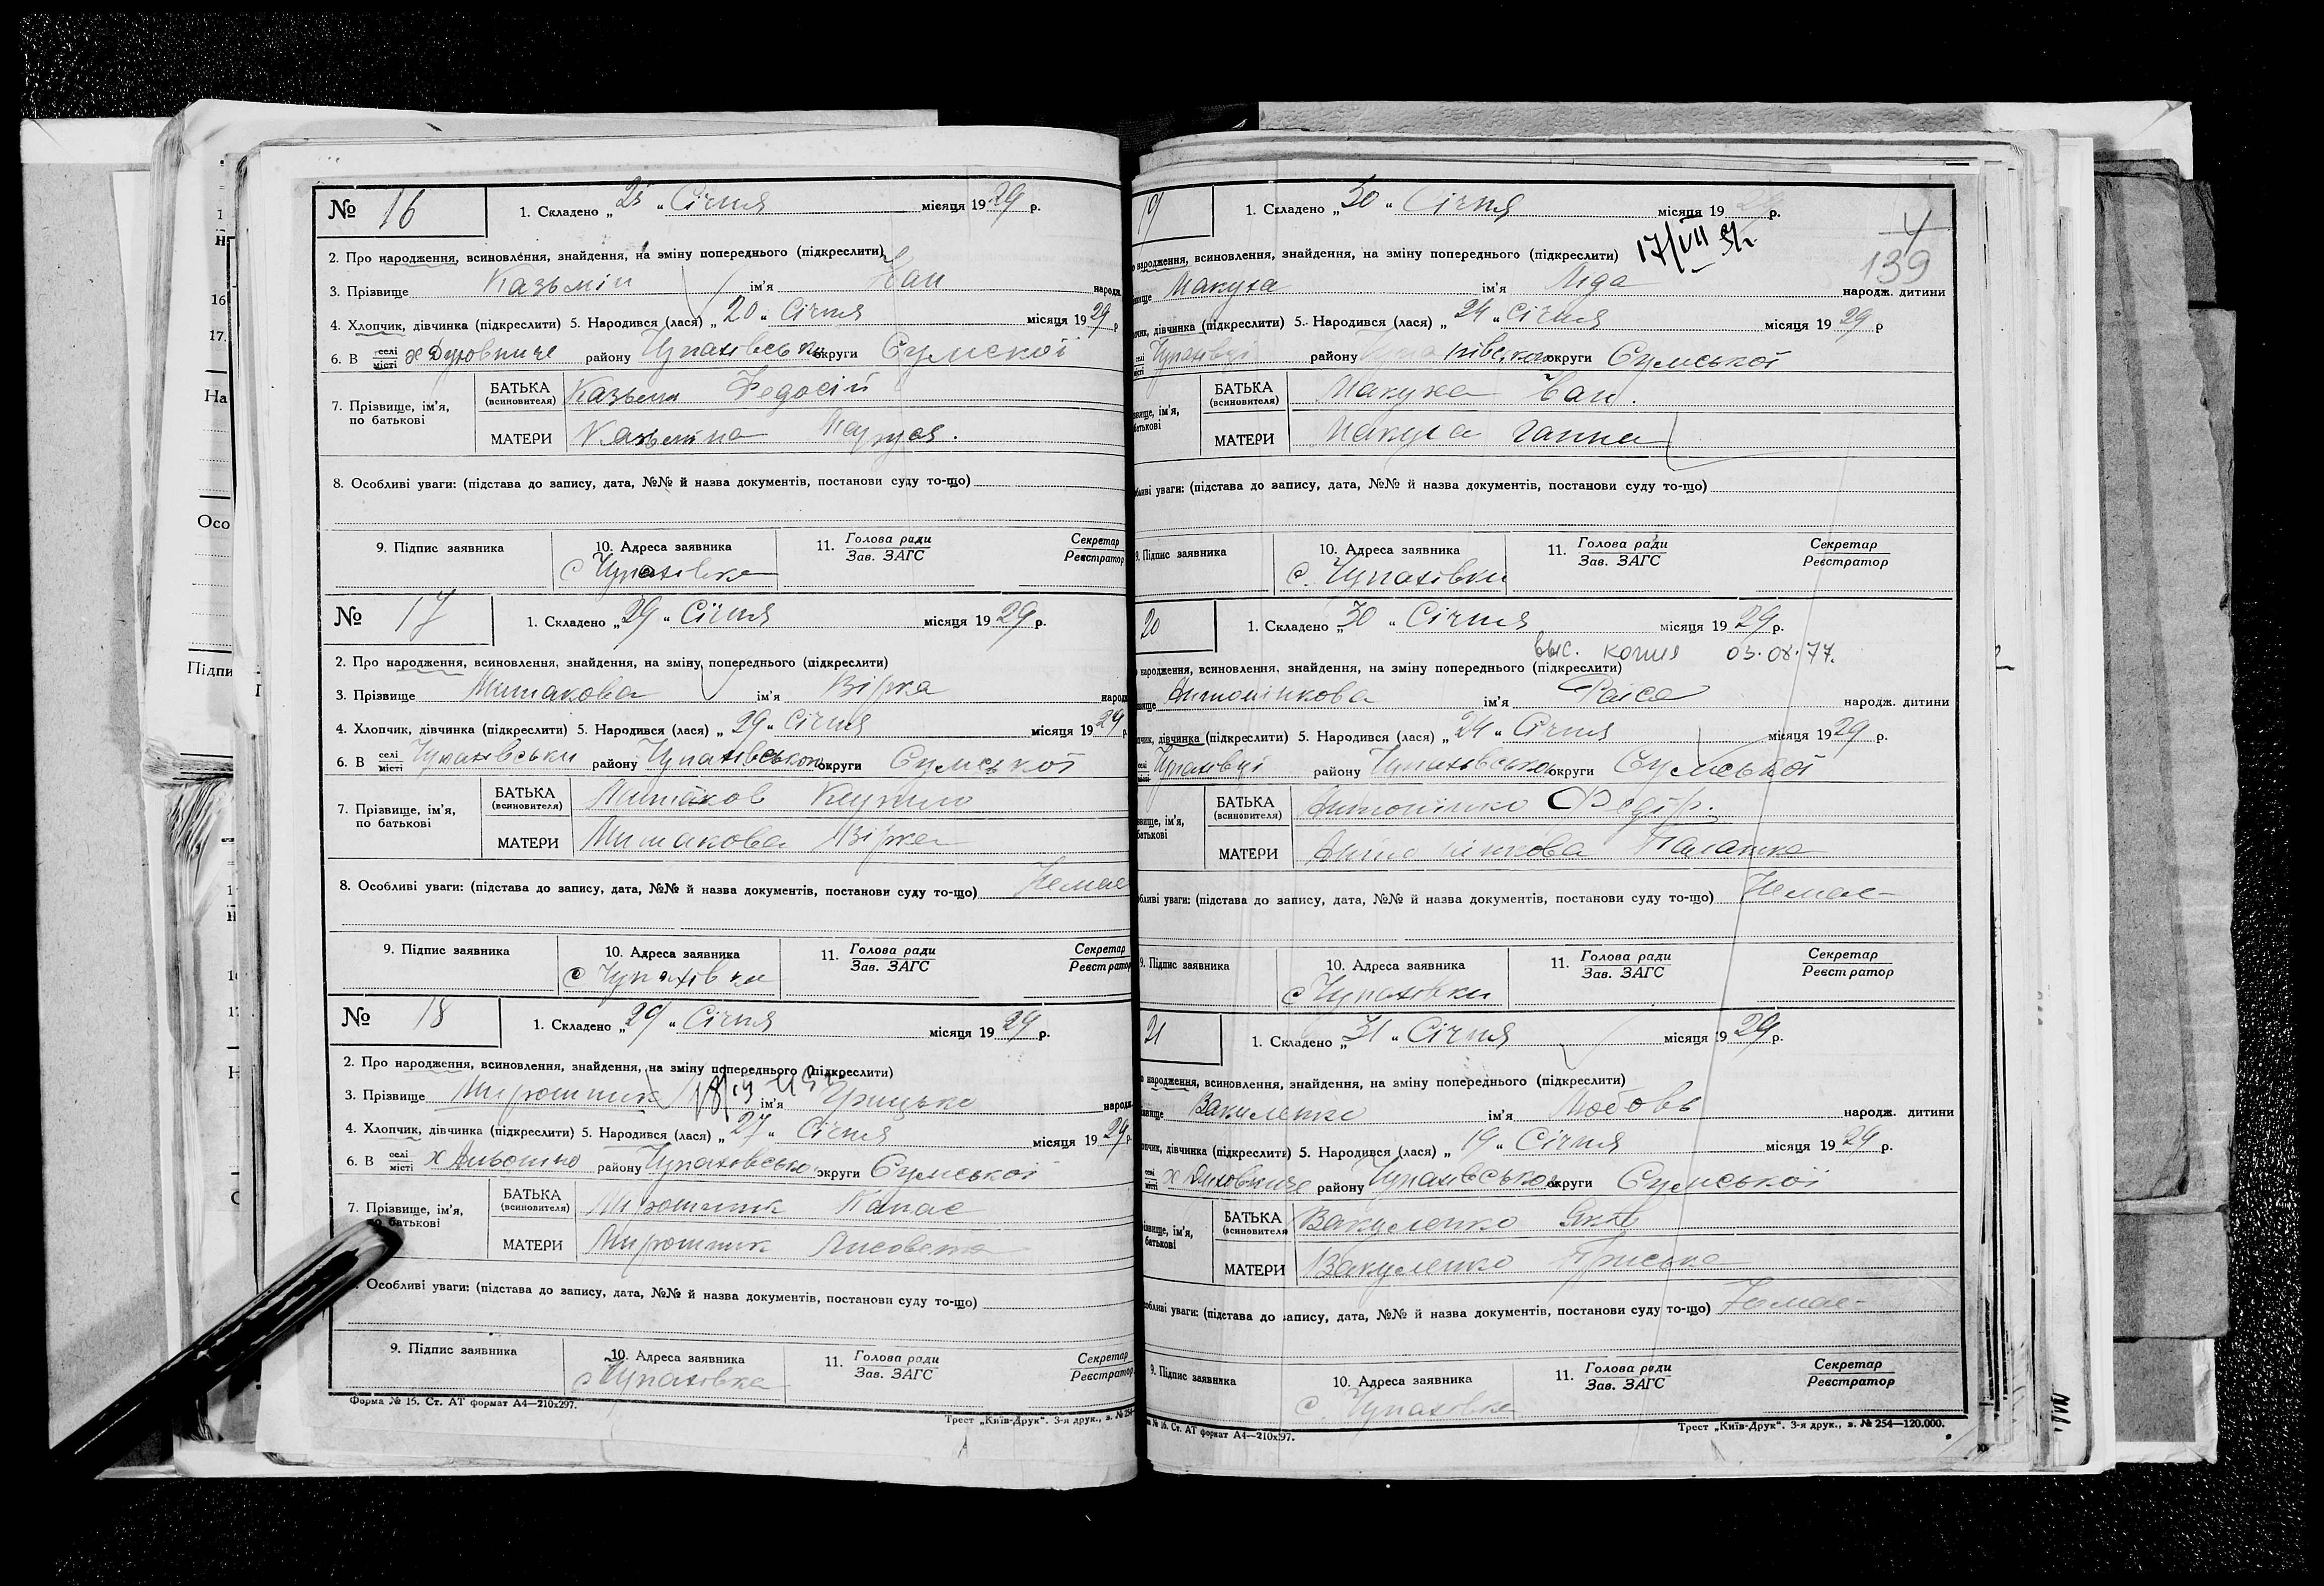 № 16
1. Складено „ 25 “ Січня місяця 1929 р.
2. Про народження, всиновлення, знайдення, на зміну попереднього (підкреслити)
3. Прізвище Казьмін ім'я Іван народж.
4. Хлопчик, дівчинка (підкреслити) 5. Народився (лася) „ 20 “ Січня місяця 1929 р
6. В селі місті х району Чупахівського округи Сумської
7. Прізвище, ім'я, по батькові
БАТЬКА (всиновителя) Казьмин Федосій
МАТЕРИ Казьміна Маруся.
8. Особливі уваги: (підстава до запису, дата, №№ й назва документів, постанови суду то-що)
9. Підпис заявника 10. Адреса заявника 11. Голова ради Зав. ЗАГС Секретар Реєстратор
с Чупахівка
№ 17
1. Складено „ 29 “ Січня місяця 1929 р.
2. Про народження, всиновлення, знайдення, на зміну попереднього (підкреслити)
3. Прізвище ім'я Вірка народж
4. Хлопчик, дівчинка (підкреслити) 5. Народився (лася) „ 29 “ Січня місяця 1929 р.
6. В селі місті району Чупахівського округи Сумської
7. Прізвище, ім'я, по батькові
БАТЬКА (всиновителя)
МАТЕРИ Вірка
8. Особливі уваги: (підстава до запису, дата, №№ й назва документів, постанови суду то-що) Немае
9. Підпис заявника 10. Адреса заявника 11. Голова ради Зав. ЗАГС Секретар Реєстратор
с Чупахівки
№ 18
1. Складено „ 29 “ Січня місяця 1929 р.
2. Про народження, всиновлення, знайдення, на зміну попереднього (підкреслити)
3. Прізвище Мирошник ім'я Грицько народж.
4. Хлопчик, дівчинка (підкреслити) 5. Народився (лася) „ 27 “ Січня місяця 1929 р.
6. В селі місті х району Чупахівського округи Сумської
7. Прізвище, ім'я, по батькові
БАТЬКА (всиновителя) Мирошник Панас
МАТЕРИ Мирошник Лисовета
Особливі уваги: (підстава до запису, дата, №№ й назва документів, постанови суду то-що)
9. Підпис заявника 10. Адреса заявника 11. Голова ради Зав. ЗАГС Секретар Реєстратор
с Чупахівка
Форма № 15. Ст. АТ формат А4—210х297.
Трест „Київ-Друк“. 3-я друк., з. № 254
19
1. Складено „ 30 “ Січня місяця 1929 р.
17/VII
4
139
народження, всиновлення, знайдення, на зміну попереднього (підкреслити)
Макуха ім'я Ліда народж. дитини
дівчинка (підкреслити) 5. Народився (лася) „ 24 “ Січня місяця 1929 р
Чупахівці району округи Сумської
БАТЬКА (всиновителя) Макуха Іван.
МАТЕРИ Макуха Ганна
уваги: (підстава до запису, дата, №№ й назва документів, постанови суду то-що)
9. Підпис заявника 10. Адреса заявника 11. Голова ради Зав. ЗАГС Секретар Реєстратор
с. Чупахівки
20
1. Складено „ 30 “ Січня місяця 1929 р.
выс. копия 03.08.77.
народження, всиновлення, знайдення, на зміну попереднього (підкреслити)
Антонінкова ім'я Раіса народж. дитини
дівчинка (підкреслити) 5. Народився (лася) „ 24 “ Січня місяця 1929 р.
Чупахівці району Чупахівського округи Сумської
БАТЬКА (всиновителя) Антонінко Федір.
МАТЕРИ Антонінкова Палажка
уваги: (підстава до запису, дата, №№ й назва документів, постанови суду то-що) Немае-
9. Підпис заявника 10. Адреса заявника 11. Голова ради Зав. ЗАГС Секретар Реєстратор
с Чупахівки
21
1. Складено „ 31 “ Січня місяця 1929 р.
народження, всиновлення, знайдення, на зміну попереднього (підкреслити)
Вакуленко ім'я Любовь народж. дитини
дівчинка (підкреслити) 5. Народився (лася) „ 19 “ Січня місяця 1929 р.
х району Чупахівського округи Сумської
БАТЬКА (всиновителя) Вакуленко Яків
МАТЕРИ Вакуленко Приська
уваги: (підстава до запису, дата, №№ й назва документів, постанови суду то-що) Немае-
9. Підпис заявника 10. Адреса заявника 11. Голова ради Зав. ЗАГС Секретар Реєстратор
с. Чупахівка
№ 15. Ст. АТ формат А4—210х297.
Трест „Київ-Друк“. 3-я друк., з. № 254—120.000.